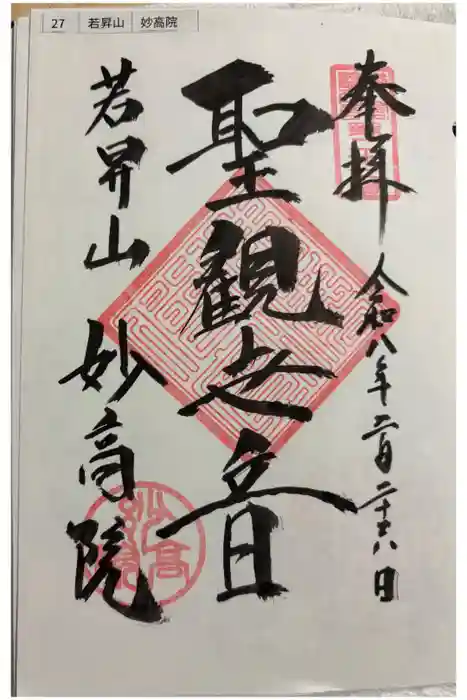 27 若昇山 妙高院
奉拝
令和八年二月二十六日
聖觀世音
若昇山 妙高院
妙高院